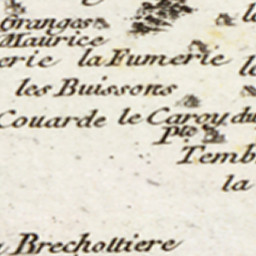 Granges
Maurice
erie la Fumerie
les Buissons
Couarde le Caroy du
Pte
Temb
la
Brechottiere